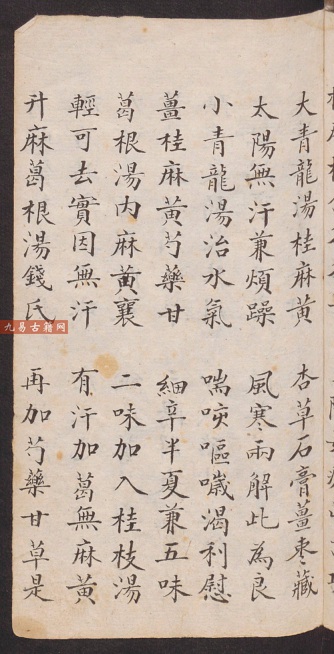 大青龍湯桂麻黃 杏草石膏薑棗藏
太陽無汗兼煩躁 風寒兩解此為良
小青龍湯治水氣 喘咳嘔噦渴利慰
薑桂麻黃芍藥甘 細辛半夏兼五味
葛根湯內麻黃襄 二味加入桂枝湯
輕可去實因無汗 有汗加葛無麻黃
升麻葛根湯錢氏 再加芍藥甘草是
九易古籍网